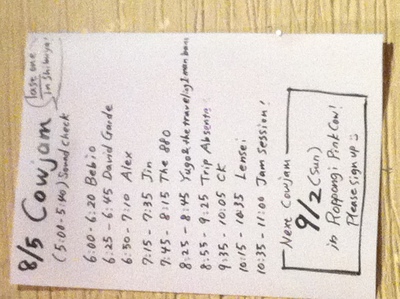 8/5 Cowjam
last one
in Shibuya!
(5:00-5:40) Sound check
6:00-6:20 Bebio
6:25 - 6:45 David Garde
6:50 - 7:10 Alex
7:15 - 7:35 Jin
7:45 - 8:15 The 880
8:25 - 8:45 Yugo & the traveling 1 man band
8:55 - 9:25 Trip Absente
9:35 - 10:05 CK
10:15 - 10:35 Lensei
10:35 - 11:00 Jam Session!
Next Cowjam
9/2 (Sun)
in Roppongi Pink Cow!
Please sign up